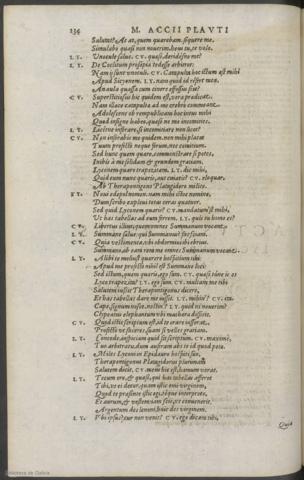 234 M. ACCII PLAVTI
Salutet? At at, quem quærebam. sequere me.
Simulabo quasi non nouerim. heus tu, te volo.
LY. Vnocule salue. CV. quæso, deridesne me?
LY. De Coclitum prosapia te esse arbitror:
Nam ij sunt vnoculi. CV. Catapulta hoc ictum est mihi
Apud Sicyonem. LY. nam quid id refert mea,
An aula quassa cum cinere effossus siet?
CV. Superstitiosus hic quidem est, vera prædicat.
Nam illæc catapultæ ad me crebro commeant.
Adolescens ob rempublicam hoc intus mihi
Quod insigne habeo, quæso ne me incomities.
LY. Licetne inforare, si incomitiare non licet?
CV. Non inforabis me quidem. nec mihi placet
Tuum profecto neque forum, nec comitium.
Sed hunc quem quæro, commonstrare si potes,
Inibis à me solidam & grandem gratiam.
Lyconem quæro trapezitam. LY. dic mihi,
Quid eum nunc quæris, aut cuiatis? CV. eloquar,
Ab Therapontigono Platagidoro milite.
LY. Noui edepol nomen. nam mihi istoc nomine,
Dum scribo expleui totas ceras quatuor.
Sed quid Lyconem quæris? CV. mandatum'st mihi,
Vt has tabellas ad eum ferrem. LY. quis tu homo es?
CV. Libertus illius, quem omnes Summanum vocant.
LY. Summane salue. qui Summanus? fac sciam.
CV. Quia vestimenta, vbi obdormiui ebrius,
Summano. ob eam rem me omnes Summanum vocant.
LY. Alibi te meliust quærere hospitium tibi:
Apud me profecto nihil est Summano loci:
Sed istum, quem quæris, ego sum. CV. quæso tune is es
Lyco trapezita? LY. ego sum. CV. multam me tibi
Salutem iussit Therapontigonus dicere,
Et has tabellas dare me iussit. LY. mihin'? CV. ita.
Cape, signum nosce. nostin'? LY. quid ni nouerim?
Clypeatus elephantum vbi machæra dissicit.
CV. Quod istic scriptum est, id te orare iusserat,
Profecto vt faceres, suam si velles gratiam.
LY. Concede, inspiciam quid sit scriptum. CV. maxime,
Tuo arbitratu, dum auferam abs te id quod peto.
LY. Miles Lyconi in Epidauro hospiti suo,
Therapontigonus Platagidorus plurimam
Salutem dicit. CV. meus hic est, hamum vorat.
LY. Tecum oro, & quæso, qui has tabellas afferet
Tibi, vt ei detur, quam istic emi virginem,
Quod te præsente istic egi, teque interprete,
Et aurum, & vestem. iam scis, vt conuenerit.
Argentum des lenoni, huic des virginem.
LY. Vbi ipsus? cur non venit? CV. ego dicam tibi,
Quia
Biblioteca de Galicia